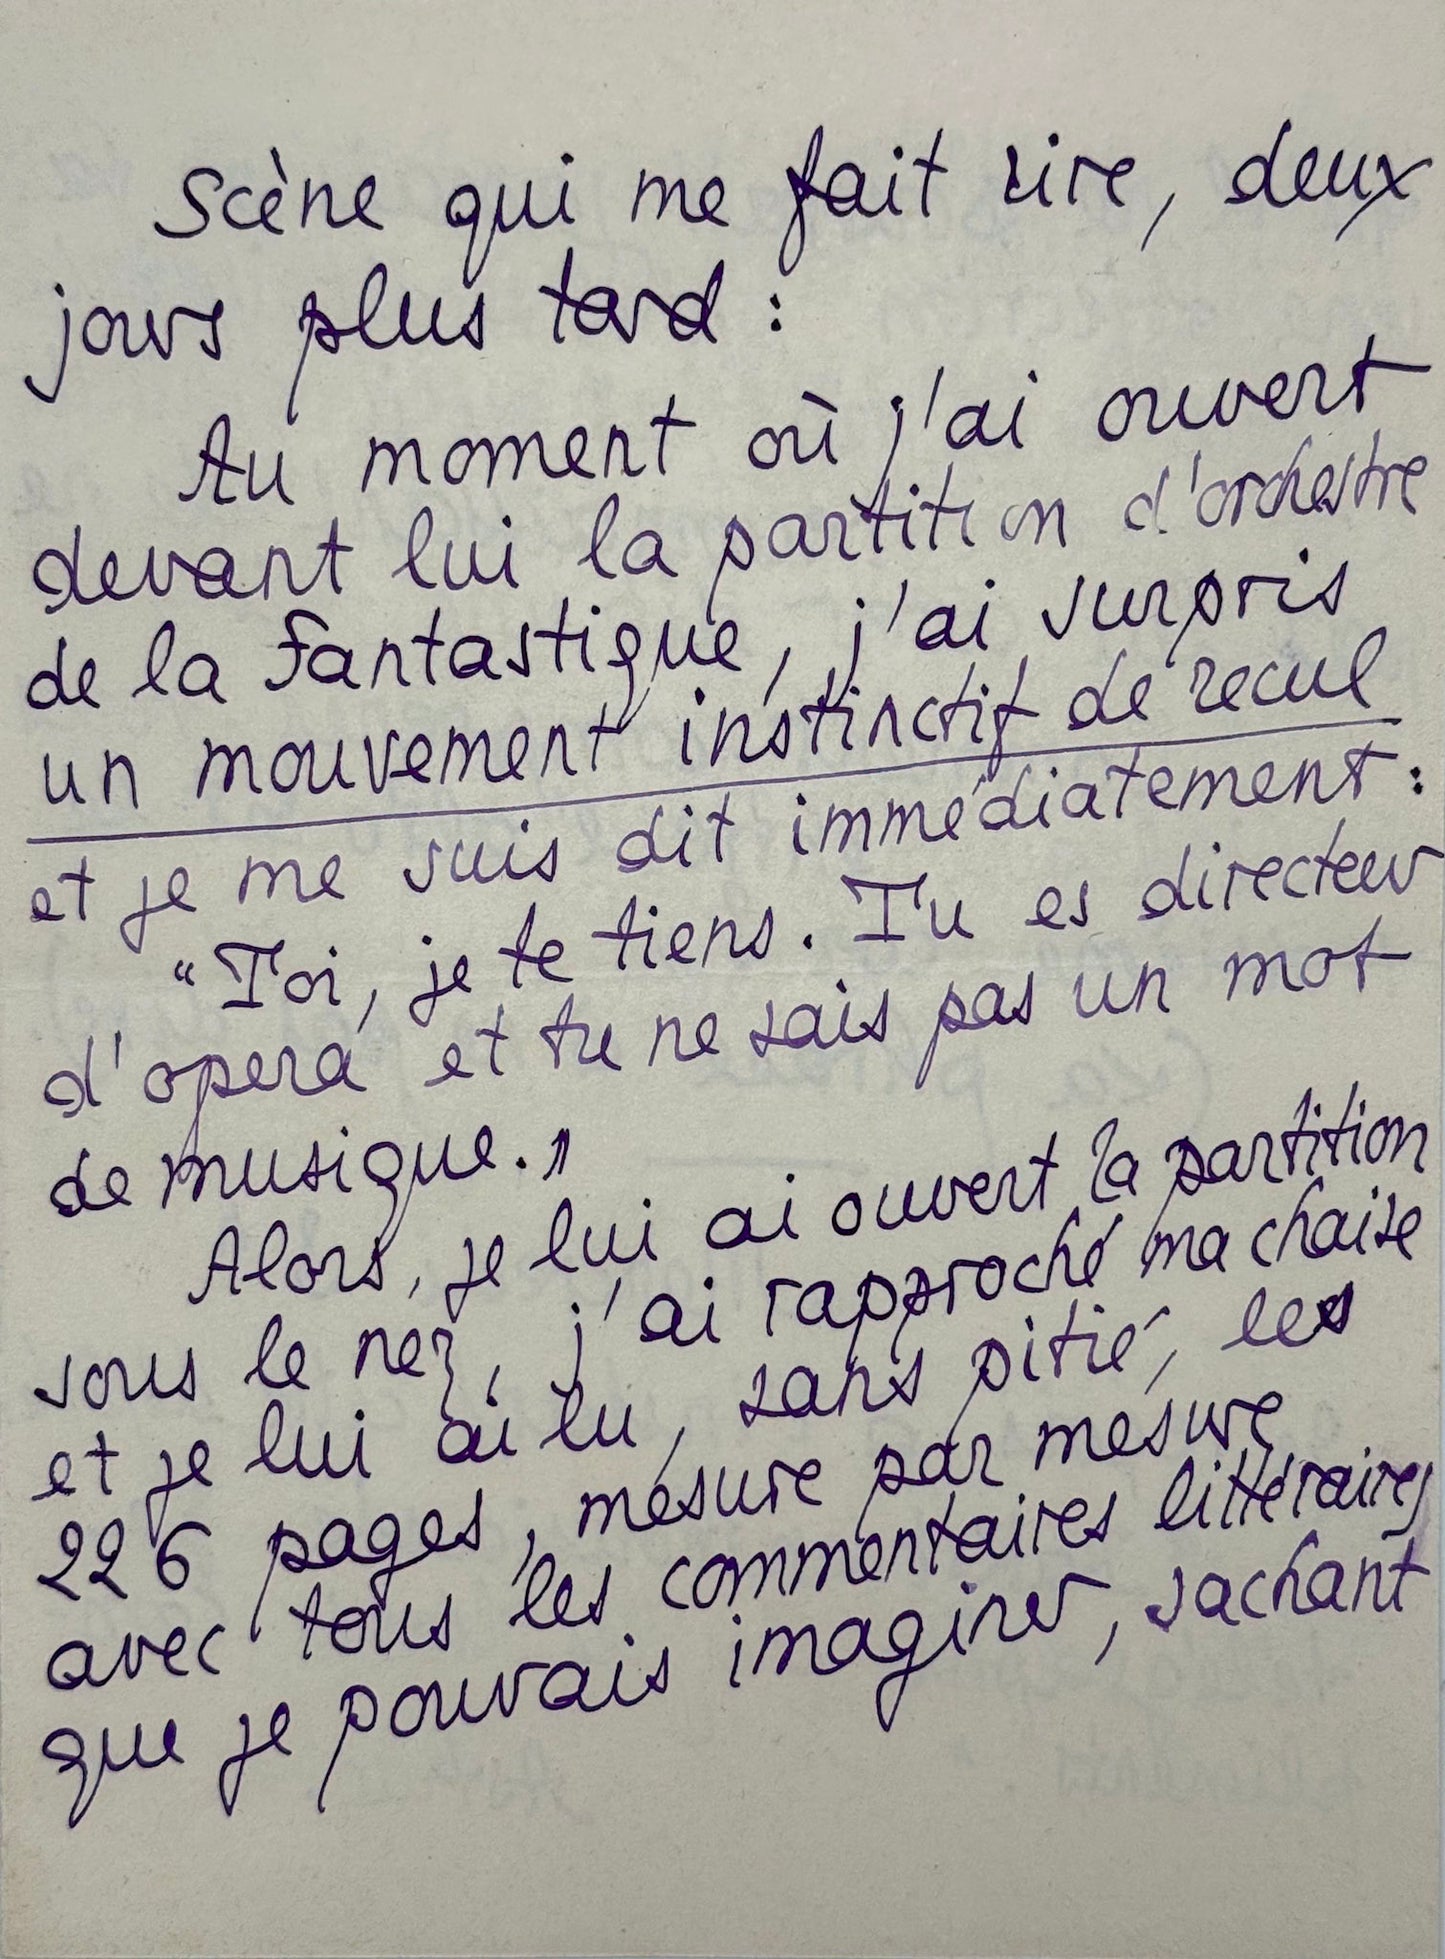 Scène qui me fait rire, deux
jours plus tard :
Au moment où j'ai ouvert
devant lui la partition d'orchestre
de la Fantastique, j'ai surpris
un mouvement instinctif de recul
et je me suis dit immédiatement :
"Toi, je te tiens. Tu es directeur
d'opéra et tu ne sais pas un mot
de musique."
Alors, je lui ai ouvert la partition
sous le nez, j'ai rapproché ma chaise
et je lui ai lu, sans pitié, les
226 pages, mesure par mesure
avec tous les commentaires littéraires
que je pouvais imaginer, sachant